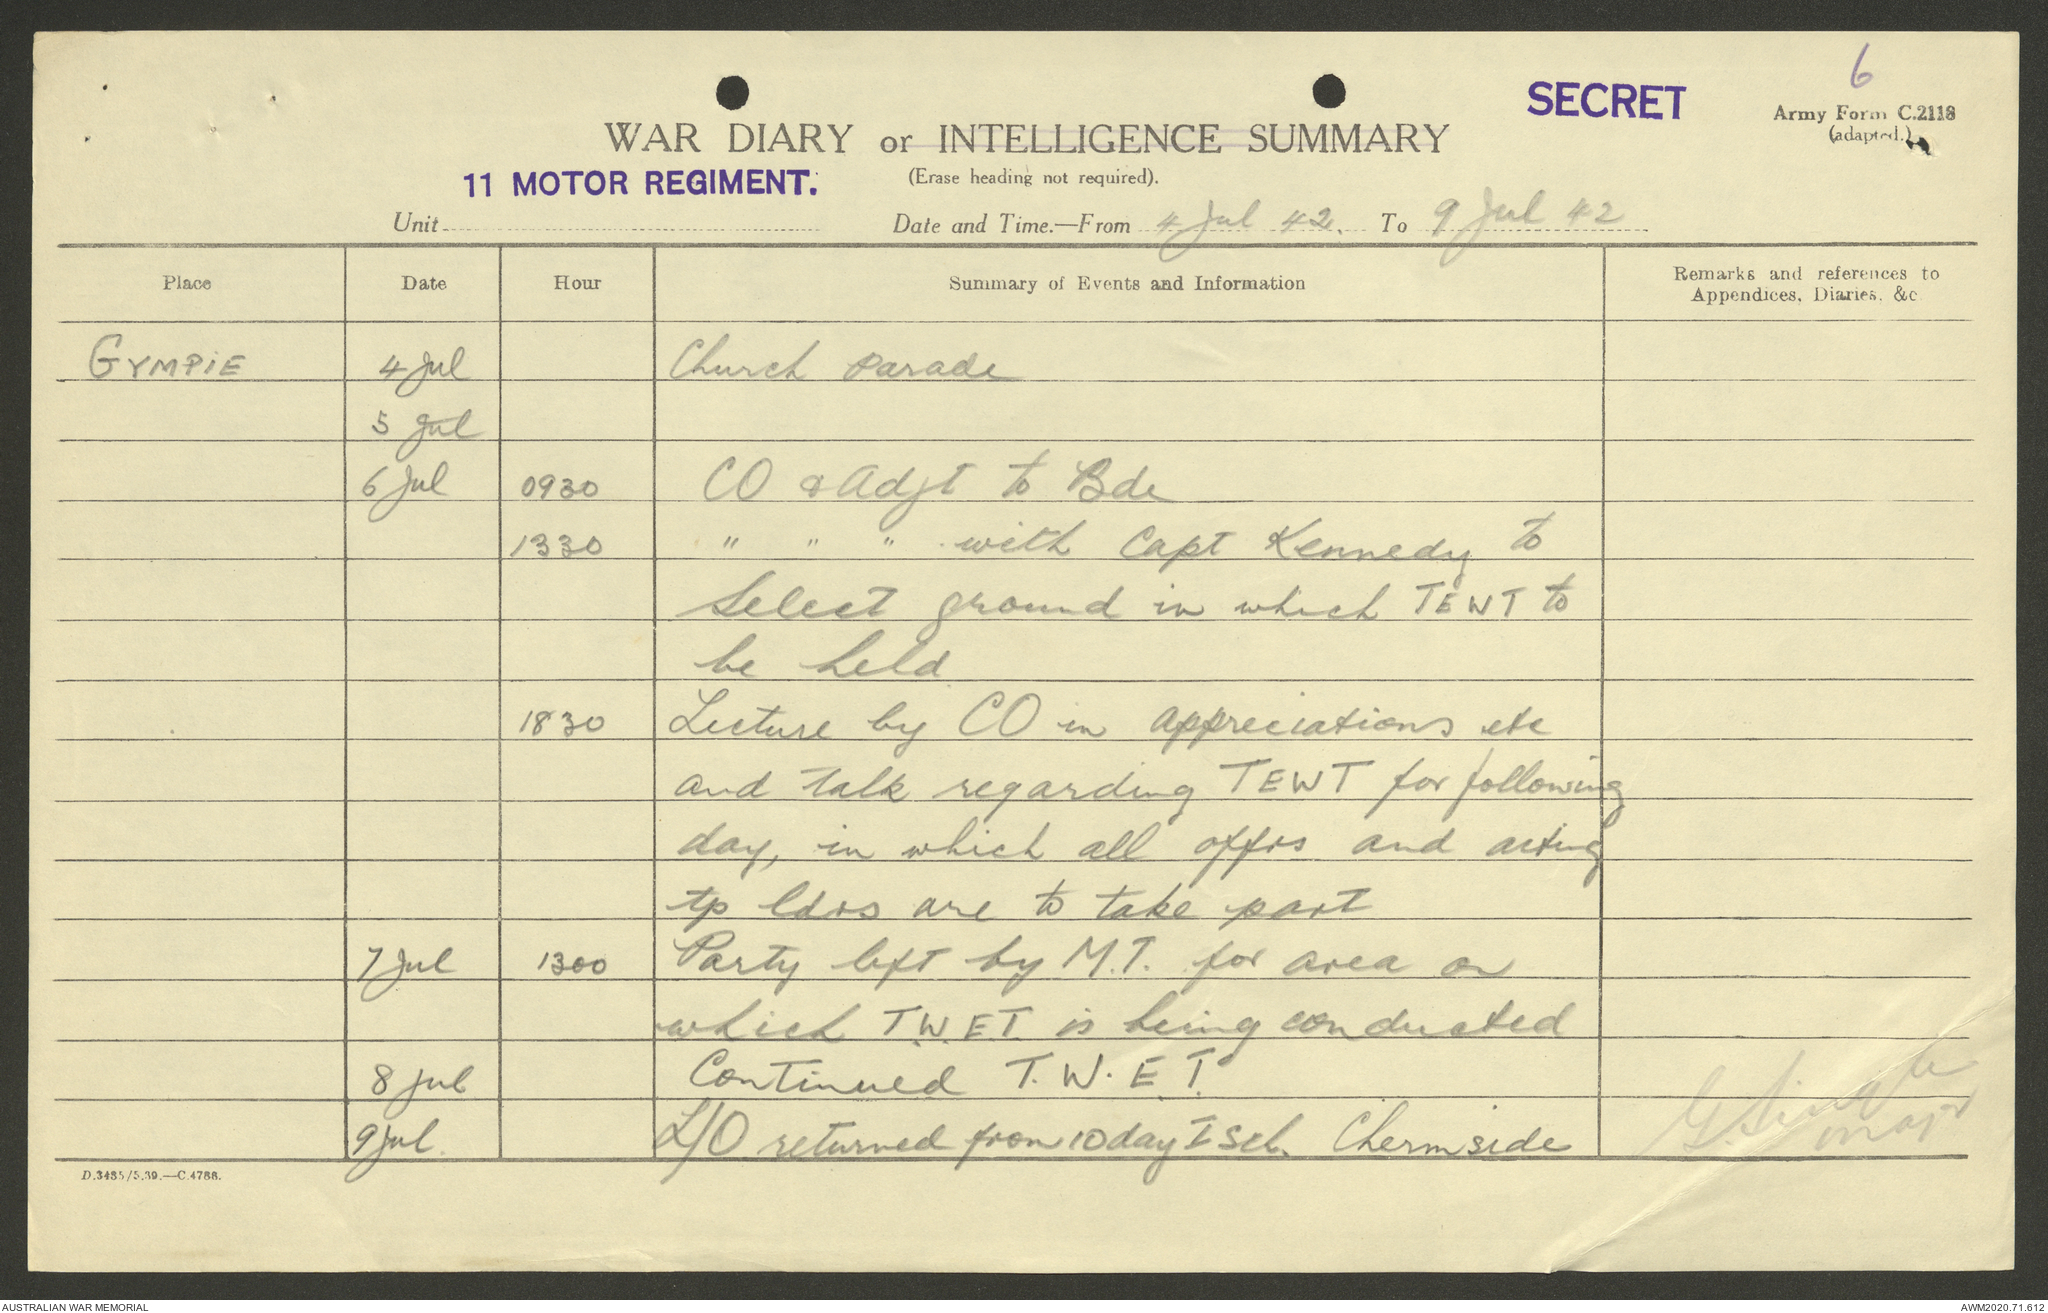 6
SECRET
Army Form C.2118
(adapted.)
WAR DIARY or INTELLIGENCE SUMMARY
(Erase heading not required).
11 MOTOR REGIMENT.
Unit Date and Time.—From 4 Jul 42. To 9 Jul 42
Place Date Hour Summary of Events and Information Remarks and references to
Appendices, Diaries, &c.
GYMPIE 4 Jul Church Parade
5 Jul
6 Jul 0930 CO & Adjt to Bde
1330 " " " with Capt Kennedy to
select ground in which TEWT to
be held
1830 Lecture by CO in appreciations etc
and talk regarding TEWT for following
day, in which all offrs and acting
tp ldrs are to take part
7 Jul 1300 Party left by M.T. for area on
which T.W.E.T. is being conducted
8 Jul Continued T.W.E.T.
9 Jul. L/O returned from 10 day I Sch. Chermside
Major
D.3435/5.39.—C.4788.
AUSTRALIAN WAR MEMORIAL AWM2020.71.612